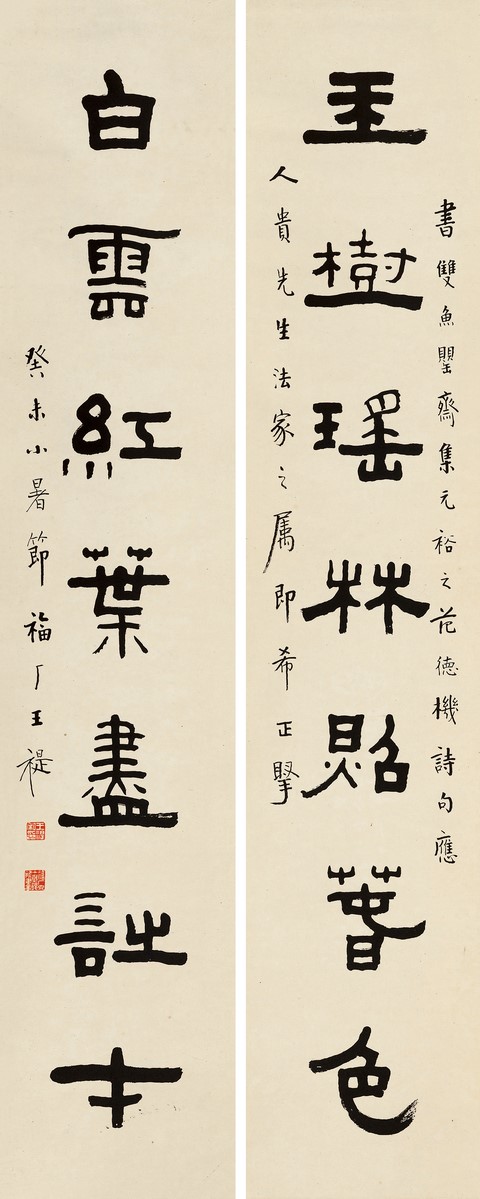 書雙魚罌齋集元裕之范德機詩句應
玉樹瑤林照萅色
人貴先生法家之属即希正掔
白雲紅葉盡詩才
癸未小暑節福厂王禔